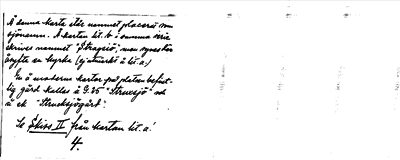 Å denna karta står namnet placerat som
sjönamn. Å kartan lit. b i samma serie
skrives namnet "Stragsiö", men synes här
åsyfta en kyrka (ej utmärkt å lit. a)
En å moderna kartor på platsen befint-
lig gård kallas å G. 35 "Struxsjö" och
å ek "Strucksjögård".
Se Skiss II från kartan lit. a.
4.